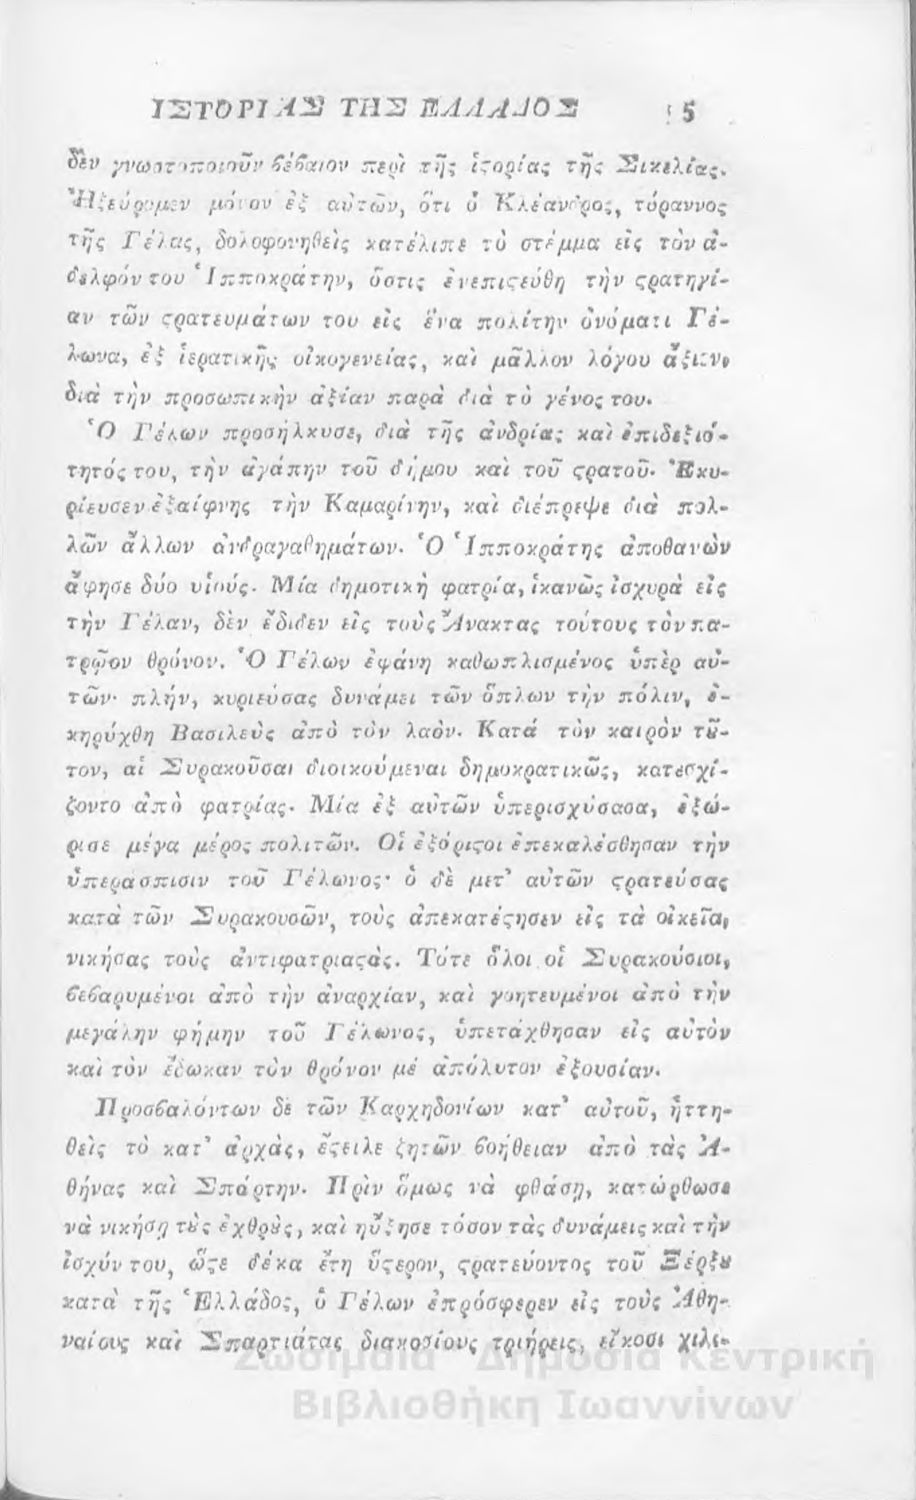 ΙΣΤΟΡΙΑΣ ΤΗΣ ΕΛΛΑΔΟΣ 5
δὲν γνωστοποιοῦν βέβαιον περὶ τῆς ἱςορίας τῆς Σικελίας.
Ἠξεύρομεν μόνον ἐξ αὐτῶν, ὅτι ὁ Κλέανδρος, τύραννος
τῆς Γέλας, δολοφονηθεὶς κατέλιπε τὸ στέμμα εἰς τὸν ἀ-
δελφόν του Ἱπποκράτην, ὅστις ἐνεπιςεύθη τὴν ςρατηγί-
αν τῶν ςρατευμάτων του εἰς ἕνα πολίτην ὀνόματι Γέ-
λωνα, ἐξ ἱερατικῆς οἰκογενείας, καὶ μᾶλλον λόγου ἄξιον
διὰ τὴν προσωπικὴν ἀξίαν παρὰ διὰ τὸ γένος του.
Ὁ Γέλων προσήλκυσε, διὰ τῆς ἀνδρίας καὶ ἐπιδεξιό-
τητός του, τὴν ἀγάπην τοῦ δήμου καὶ τοῦ ςρατοῦ· Ἐκυ-
ρίευσεν ἐξαίφνης τὴν Καμαρίνην, καὶ διέπρεψε διὰ πολ-
λῶν ἄλλων ἀνδραγαθημάτων. Ὁ Ἱπποκράτης ἀποθανὼν
ἄφησε δύο υἱούς. Μία δημοτικὴ φατρία, ἱκανῶς ἰσχυρὰ εἰς
τὴν Γέλαν, δὲν ἔδιδεν εἰς τοὺς Ἄνακτας τούτους τὸν πα-
τρῷον θρόνον. Ὁ Γέλων ἐφάνη καθωπλισμένος ὑπὲρ αὐ-
τῶν· πλήν, κυριεύσας δυνάμει τῶν ὅπλων τὴν πόλιν, ἐ-
κηρύχθη Βασιλεὺς ἀπὸ τὸν λαόν. Κατὰ τὸν καιρὸν τȣ͂-
τον, αἱ Συρακοῦσαι διοικούμεναι δημοκρατικῶς, κατεσχί-
ζοντο ἀπὸ φατρίας. Μία ἐξ αὐτῶν ὑπερισχύσασα, ἐξώ-
ρισε μέγα μέρος πολιτῶν. Οἱ ἐξόριςοι ἐπεκαλέσθησαν τὴν
ὑπεράσπισιν τοῦ Γέλωνος· ὁ δὲ μετ' αὐτῶν ςρατεύσας
κατὰ τῶν Συρακουσῶν, τοὺς ἀπεκατέςησεν εἰς τὰ οἰκεῖα,
νικήσας τοὺς ἀντιφατριαςάς. Τότε ὅλοι οἱ Συρακούσιοι,
βεβαρυμένοι ἀπὸ τὴν ἀναρχίαν, καὶ γοητευμένοι ἀπὸ τὴν
μεγάλην φήμην τοῦ Γέλωνος, ὑπετάχθησαν εἰς αὐτὸν
καὶ τὸν ἔδωκαν τὸν θρόνον μὲ ἀπόλυτον ἐξουσίαν.
Προσβαλόντων δὲ τῶν Καρχηδονίων κατ' αὐτοῦ, ἡττη-
θεὶς τὸ κατ' ἀρχάς, ἔςειλε ζητῶν βοήθειαν ἀπὸ τὰς Ἀ-
θήνας καὶ Σπάρτην. Πρὶν ὅμως νὰ φθάσῃ, κατώρθωσε
νὰ νικήσῃ τȣ̀ς ἐχθρȣ̀ς, καὶ ηὔξησε τόσον τὰς δυνάμεις καὶ τὴν
ἰσχύν του, ὥςε δέκα ἔτη ὕςερον, ςρατεύοντος τοῦ Ξέρξȣ
κατὰ τῆς Ἑλλάδος, ὁ Γέλων ἐπρόσφερεν εἰς τοὺς Ἀθη-
ναίους καὶ Σπαρτιάτας διακοσίους τριήρεις, εἴκοσι χιλι-
Ζωσιμαία Δημόσια Κεντρική
Βιβλιοθήκη Ιωαννίνων